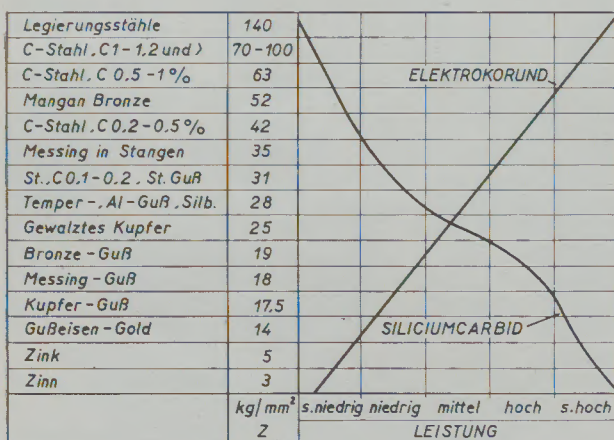 Legierungsstähle 140
C-Stahl.C1-1,2 und > 70-100
C-Stahl.C 0,5-1% 63
ELEKTROKORUND
Mangan Bronze 52
C-Stahl.C0,2-0,5% 42
Messing in Stangen 35
St.,C0,1-0,2.St.Guß 31
Temper-.Al-Guß.Silb. 28
Gewalztes Kupfer 25
Bronze-Guß 19
Messing-Guß 18
Kupfer-Guß 17,5
Gußeisen-Gold 14
SILICIUMCARBID
Zink 5
Zinn 3
kg/mm² s.niedrig niedrig mittel hoch s.hoch
Z LEISTUNG